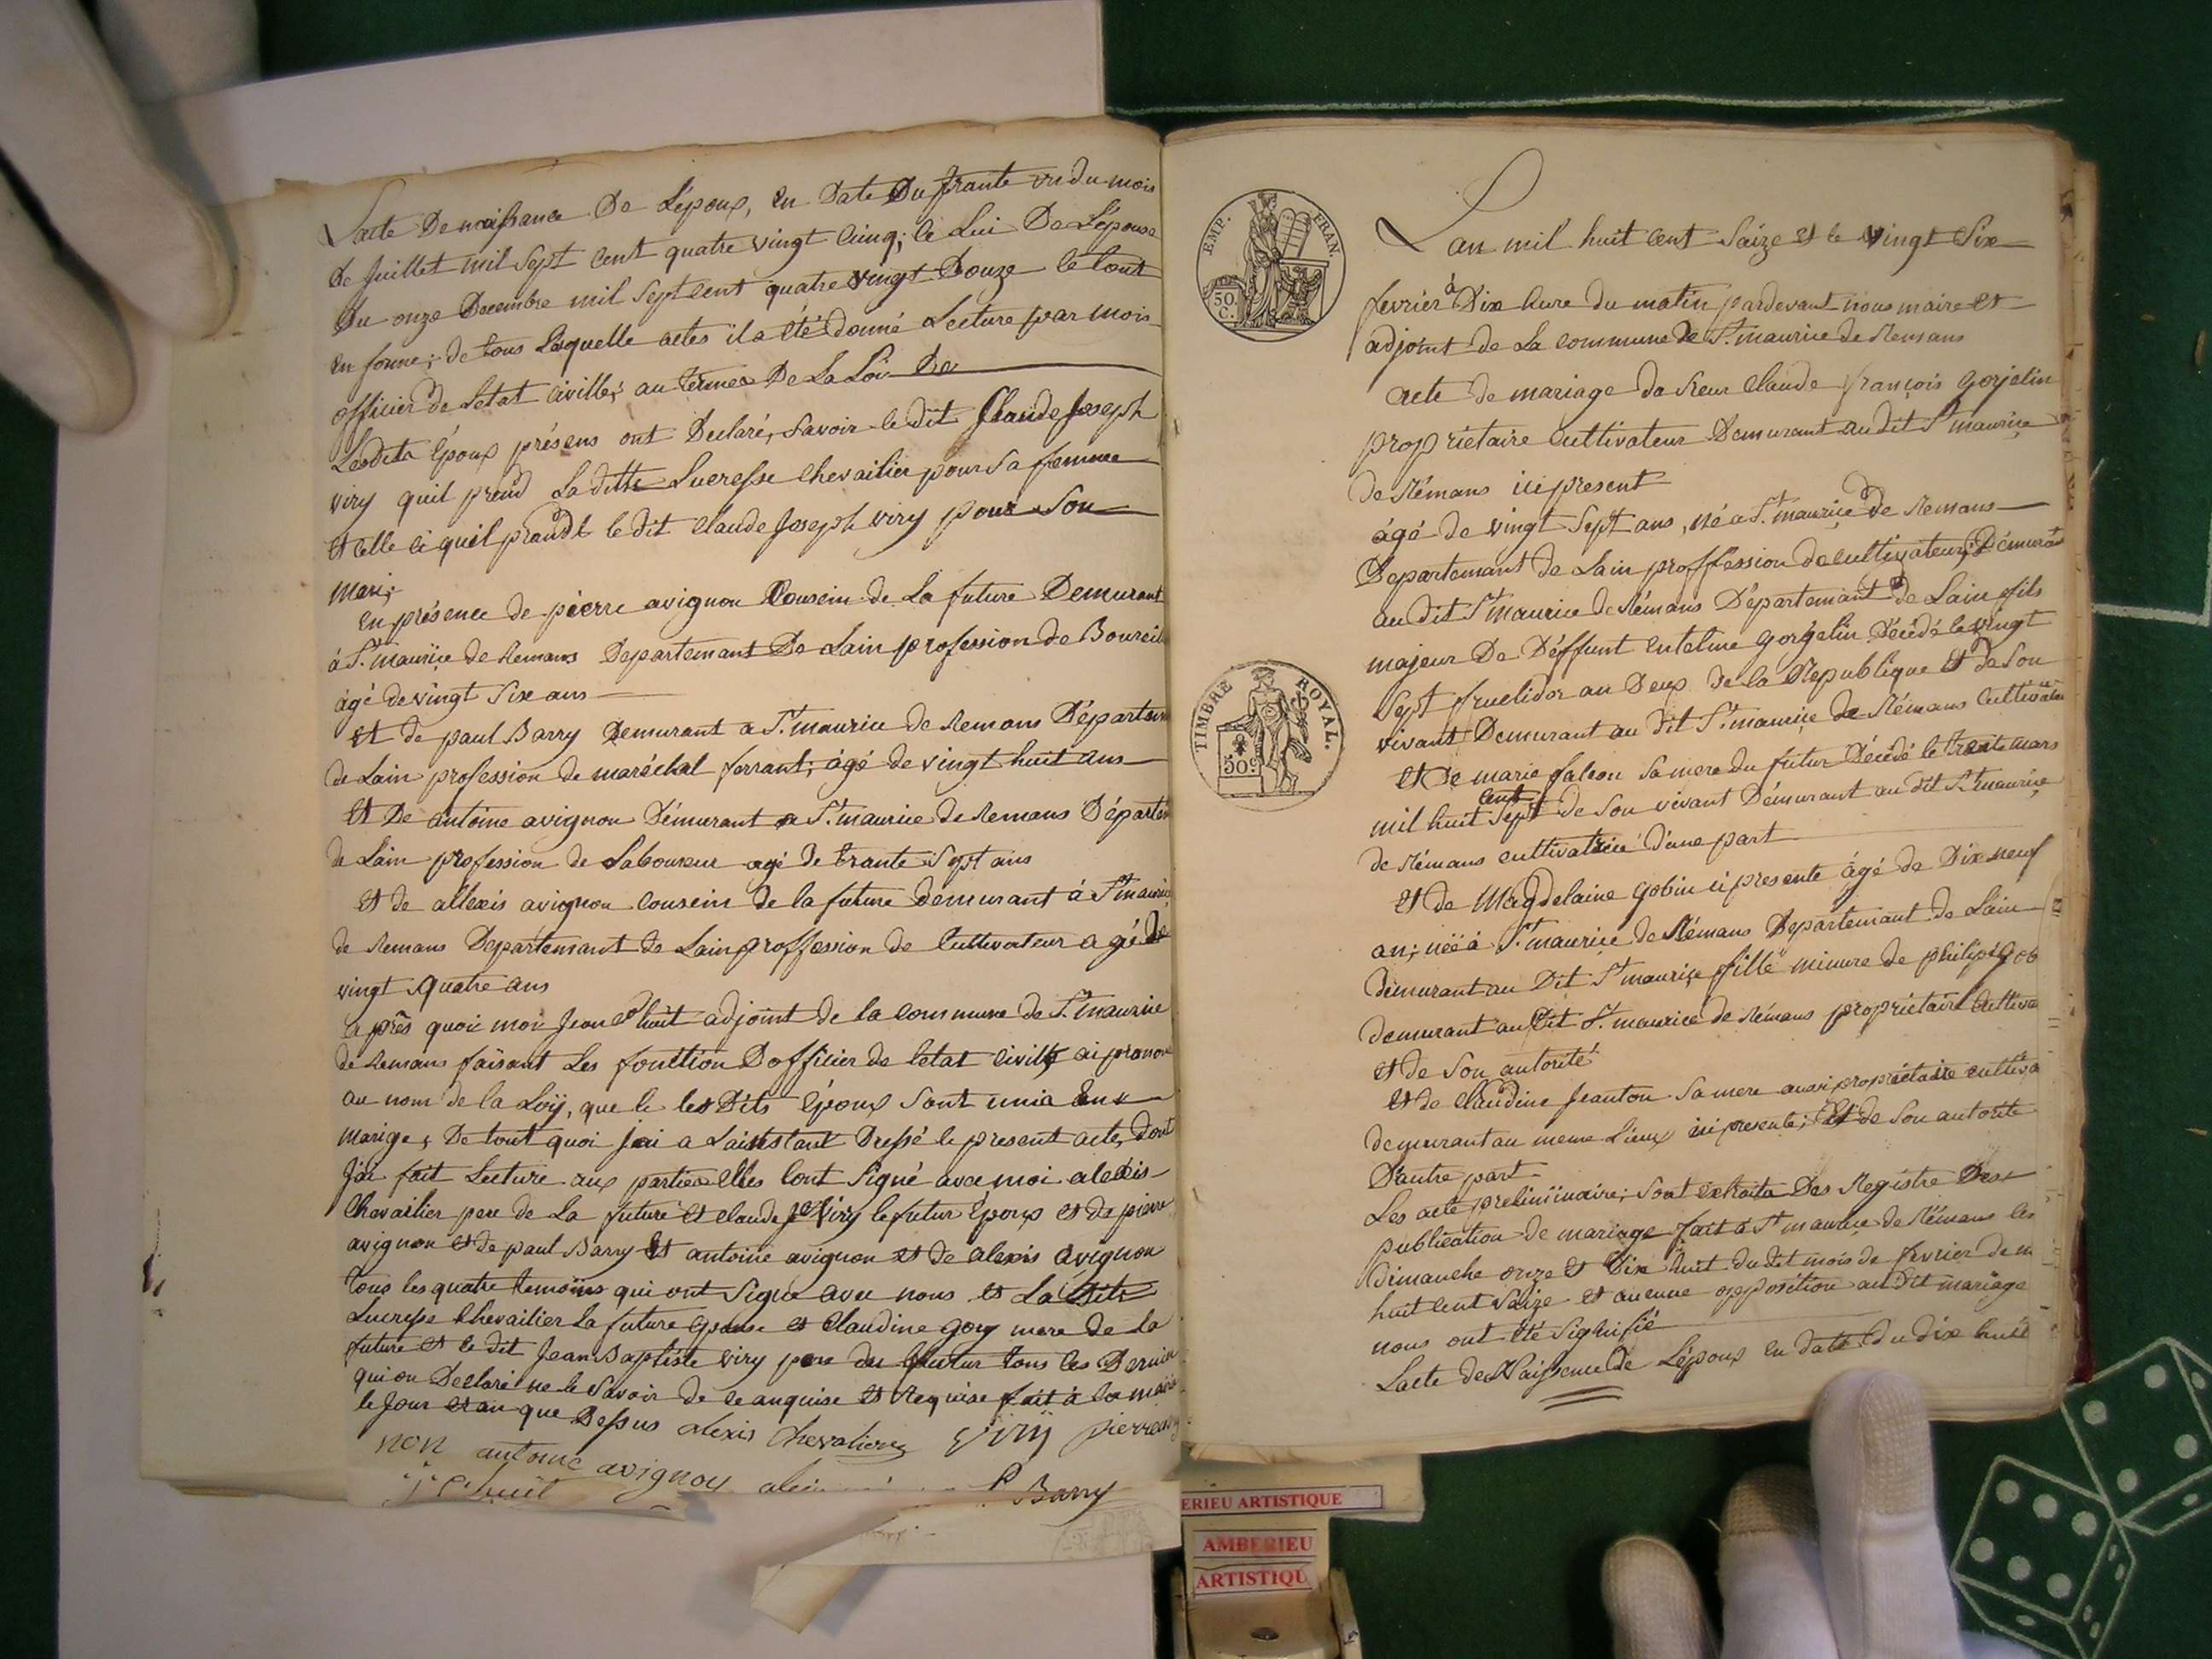 Lacte De naissance De Lépoux, en Date Du trante un du mois
de Juillet mil Sept Cent quatre vingt Cinq; ce Lui De Lépouse
Du onze Decembre mil Sept Cent quatre vingt Douze le tout
en forme; de tous Lesquelle actes il a été donné Lecture par mois
officier de Letat Civille; au termes De La Loi
Lesdits Epoux présens ont Declaré, Savoir le dit Claude Joseph
viry quil prend La ditte Lucresse Chevailier pour Sa femme
et Celle ci quil prandt le dit Claude Joseph viry pour Son
Mari;
en présence de pierre avignon Cousein de La future Demurant
à St. maurice de Remans Departemant De Lain profession de
âgé de vingt Six ans
et de paul Barry Demurant a St. maurice de Remans
de Lain profession de maréchal ferrant; âgé de vingt huit ans
et De antoine avignon Démurant a St. maurice de Remans
de Lain profession de Laboureur agé de trante Sept ans
et de allexis avignon Cousein de la future demurant à St
de Remans Departemant de Lain proffession de Cultivateur agé de
vingt quatre ans
a près quoi moi Jean adjoint de la Commune de St. maurice
de Remans faisant Les fonttion Dofficier de letat Civille ai
au nom de la Loÿ, que le les Dits Epoux Sont unis En
Marige; De tout quoi Jai a Lainstant Dressé le present acte, dont
Jai fait Lecture aux parties Elles lont Signé avec moi alexis
Chevailier pere de La future et Claude Viry le futur Epoux et de pierre
avignon et de paul Barry Et antoine avignon et de alexis avignon
tous les quatre temoins qui ont Signé avec nous et La Dite
Lucresse Chevailier la future Epouse et Claudine Goy mere de la
future et le dit Jean Baptiste viry pere du futur tous les
qui on Declaré ne le Savoir de ce anquise et Requise fait à la
le Jour et an que Dessus alexis Chevalier Viry pierre
non antoine avignon
Barry
TEMP. FRAN.
50. C.
TIMBRE ROYAL.
50.
Lan mil huit Cent Saize et le vingt Six
fevrier à Dix hure du matin pardevant nous maire et
adjoint de La Commune de St. maurice de Remans
acte de mariage de Sieur Claude françois Gorjelin
propriétaire Cultivateur Demurant audit St maurice
de Rémans ici present
âgé de vingt Sept ans, né a St. maurice de Remans
Departemant de Lain proffession de Cultivateur, Démurant
au dit St maurice de Rémans Départemant de Lain fils
majeur De Déffunt Gorgelin Décédé le vingt
Sept fruetidor an Deux de la Republique et de Son
vivant Demurant au dit St. maurice de Rémans Cultivateur
et de marie falcon Sa mere du futur Décédé le trente mars
mil huit Cent Sept de Son vivant Démurant au dit St maurice
de Rémans Cultivatrice d'une part
et de Magdelaine Gobin ci presente âgé de Dix neuf
an; néë à St. maurice de Rémans Departemant de Lain
demurant au Dit St maurice fille minure de philipe Gob
demurant au Dit St. maurice de Rémans propriétaire Cultiva
et de Son autorité
et de Claudine Jeanton Sa mere aussi propriétaire cultiva
demurant au meme Lieux ici presente; et de Son autorité
D'autre part
Les acte preliminaire; Sont extraits Des Registre Des
publication de mariage fait à St maurice de Rémans les
Dimanche onze et Dix huit du dit mois de fevrier de m
huit Cent Saize et aucune opposition au Dit mariage
nous ont été Signifié
Lacte de Naissence de Lépoux en date du dix huit
ERIEU ARTISTIQUE
AMBERIEU
ARTISTIQU